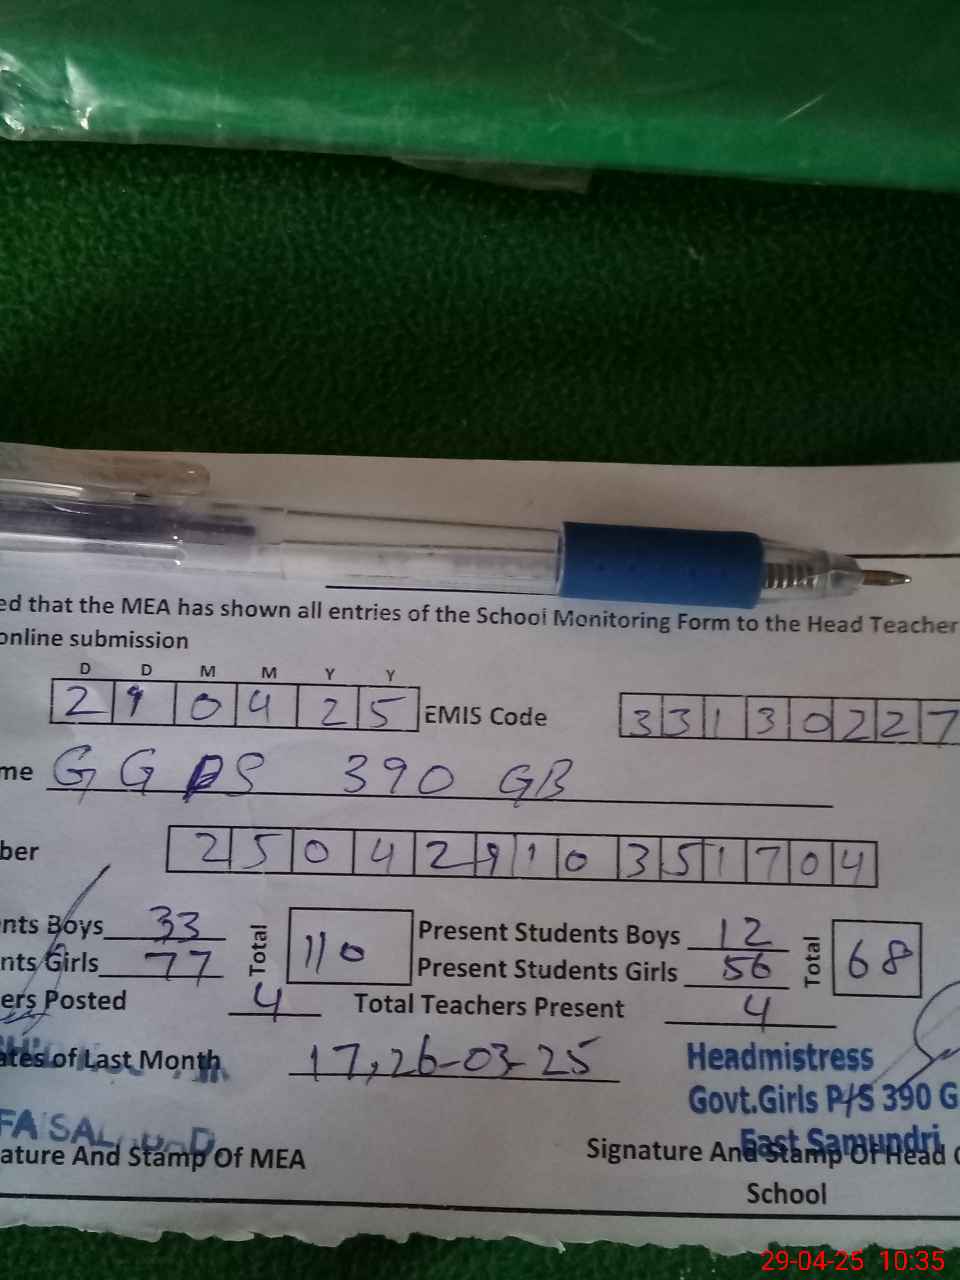 ed that the MEA has shown all entries of the School Monitoring Form to the Head Teacher
online submission
D D M M Y Y
2 9 0 4 2 5 EMIS Code 3 3 1 3 0 2 2 7
me G G P S 390 GB
ber 2 5 0 4 2 9 1 0 3 5 1 7 0 4
nts Boys 33 Total 110 Present Students Boys 12 Total 68
nts Girls 77 Present Students Girls 56
ers Posted 4 Total Teachers Present 4
ates of Last Month 17, 26-03-25
Headmistress
Govt.Girls P/S 390 G
East Samundri
FAISAL
ature And Stamp Of MEA
Signature And Stamp Of Head O
School
29-04-25 10:35